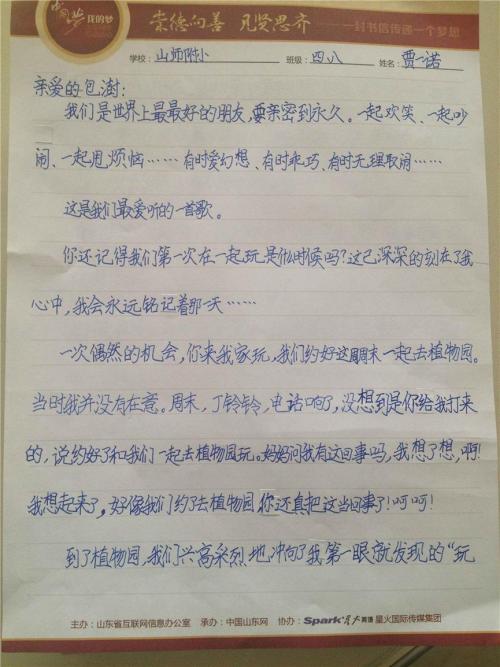 中国梦 我的梦 崇德向善 见贤思齐 一封书信传递一个梦想
学校：山师附小 班级：四八 姓名：贾一诺
亲爱的包澍：
我们是世界上最最好的朋友，要亲密到永久。一起欢笑、一起吵
闹、一起甩烦恼……有时爱幻想、有时乖巧、有时无理取闹……
这是我们最爱听的一首歌。
你还记得我们第一次在一起玩是什么时候吗？这已深深的刻在了我
心中，我会永远铭记着那一天……
一次偶然的机会，你来我家玩，我们约好这周末一起去植物园。
当时我并没有在意。周末，丁铃铃，电话响了，没想到是你给我打来
的，说约好了和我们一起去植物园玩。妈妈问我有这回事吗，我想了想，啊！
我想起来了，好像我们约了去植物园，你还真把这当回事了！呵呵！
到了植物园，我们兴高采烈地冲向了我第一眼就发现的“玩
主办：山东省互联网信息办公室 承办：中国山东网 协办：Spark星火英语 星火国际传媒集团